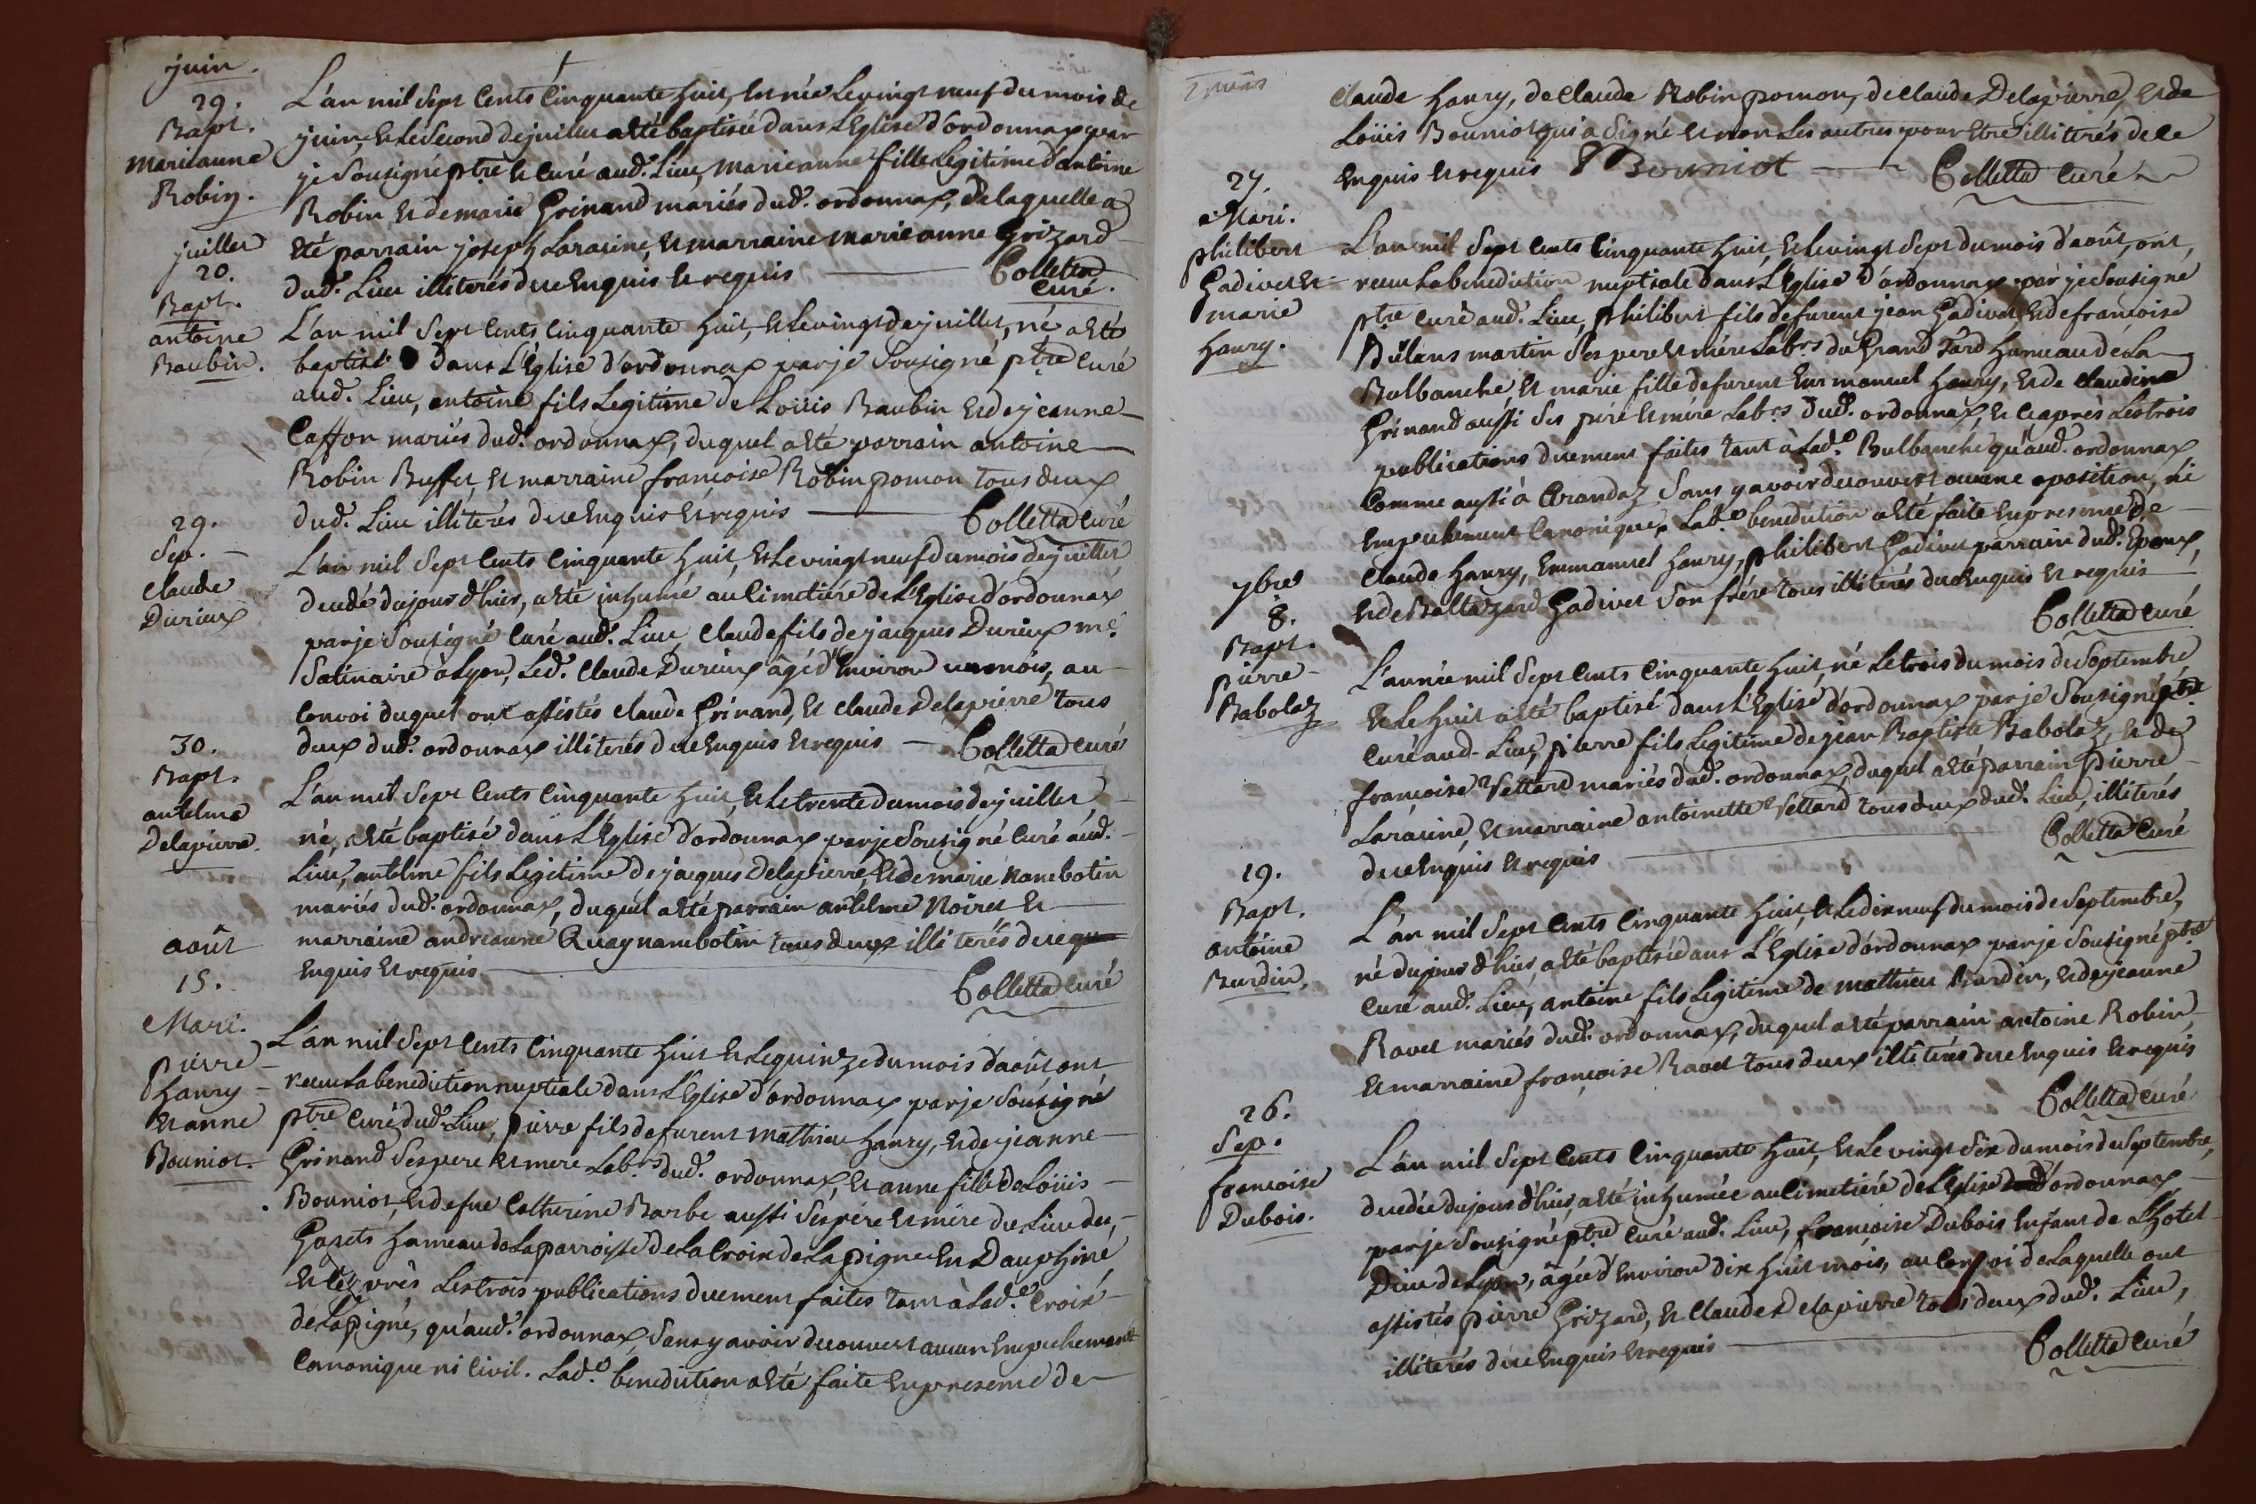 juin.
29.
Bapt.
marieanne
Robin.
L'an mil sept cents cinquante huit, est née le vingt neuf du mois de
juin, et le second de juillet a été baptisée dans l'Eglise d'ordonnax par
je sousigné ptre et curé aud. Lieu, marieanne fille legitime d'antoine
Robin et de marie Grinand mariés dud. ordonnax, de laquelle a
été parrain joseph Laracine, et marraine marieanne Grizard
dud. Lieu illiterés de ce enquis et requis
Colletta
curé.
juillet
20.
Bapt.
antoine
Baubin.
L'an mil sept cents cinquante huit, et le vingt de juillet, né a été
baptisé dans l'Eglise d'ordonnax par je sousigné ptre curé
aud. Lieu, antoine fils legitime de Loüis Baubin et de jeanne
Caffon mariés dud. ordonnax, duquel a été parrain antoine
Robin Buffet, et marraine françoise Robin pomon tous deux
dud. Lieu illiterés de ce enquis et requis Colletta curé
29.
Sep.
Claude
Durieux
L'an mil sept cents cinquante huit, et le vingt neuf du mois de juillet,
decedé du jour d'hier, a été inhumé au cimetiére de l'Eglise d'ordonnax
par je sousigné curé aud. Lieu, Claude fils de jacques Durieux me.
Satinaire à Lyon, Led. Claude Durieux âgé d'environ un mois, au
convoi duquel ont assistés claude Grinand, et claude Delapierre tous
deux dud. ordonnax illiterés de ce enquis et requis Colletta curé
30.
Bapt.
antelme
Delapierre.
L'an mil sept cents cinquante huit, et le trente du mois de juillet
né, a été baptisé dans l'Eglise d'ordonnax par je sousigné curé aud.
Lieu, antelme fils legitime de jacques Delapierre, et de marie nambotin
mariés dud. ordonnax, duquel a été parrain antelme Noiret et
marraine andreanne Quaynambotin tous deux illiterés de ce
enquis et requis
Colletta curé
août
15.
Mari.
pierre
hanry
et anne
Bouniot.
L'an mil sept cents cinquante huit et le quinze du mois d'août ont
receu la benediction nuptiale dans l'Eglise d'ordonnax par je sousigné
ptre curé dud. Lieu, pierre fils defurent mathieu hanry, et de jeanne
Grinand ses pere et mere Labrs. dud. ordonnax, et anne fille de Loüis
Bouniot, et de fue Catherine Barbe aussi ses pére et mére du Lieu des
Gazets hameau de la parroisse de la Croix de la pigne en Dauphiné
et après les trois publications duement faites tant à lad.e Croix
de la pigne, qu'aud. ordonnax, sans y avoir decouvert aucun empechement
canonique ni civil. Lad.e benediction a été faite en presence de
claude hanry, de claude Robin pomon, de claude Delapierre, et de
Loüis Bouniot qui a signé et non les autres pour etre illiterés de ce
enquis et requis Bouniot Colletta curé
27.
Mari.
philibert
Gadivet et
marie
hanry.
L'an mil sept cents cinquante huit, et le vingt sept du mois d'août, ont,
receu la benediction nuptiale dans l'Eglise d'ordonnax par je sousigné
ptre curé aud. Lieu, philibert fils defurent jean Gadivet, et de françoise
martin ses pere et mére Labrs. du Grand hameau de La
Balbanche, et marie fille defurent Emmanuel hanry, et de claudine
Grinand aussi ses pere et mére Labrs. dud. ordonnax, et après les trois
publications duement faites tant à lad.e Balbanche qu'aud. ordonnax
comme aussi à Arandaz sans y avoir decouvert aucune oposition, ni
empechement canonique. Lad.e benediction a été faite en presence de
Claude hanry, Emmanuel hanry, philibert Gadivet parrain dud. Epoux,
et de Baltazard Gadivet son frére tous illiterés de ce enquis et requis
Colletta curé
7bre
8.
Bapt.
pierre
Babolaz
L'année mil sept cents cinquante huit, né le trois du mois de septembre
et le huit a été baptisé dans l'Eglise d'ordonnax par je sousigné ptre
curé aud. Lieu, pierre fils legitime de jean Baptiste Babolaz, et de
françoise Vettard mariés dud. ordonnax, duquel a été parrain pierre
Laracine, et marraine antoinette Vettard tous deux dud. Lieu, illiterés
de ce enquis et requis Colletta curé
19.
Bapt.
antoine
Burdin.
L'an mil sept cents cinquante huit, et le dixneuf du mois de septembre,
né du jour d'hier, a été baptisé dans l'Eglise d'ordonnax par je sousigné ptre
curé aud. Lieu, antoine fils legitime de mathieu Burdin, et de jeanne
Ravet mariés dud. ordonnax, duquel a été parrain antoine Robin,
et marraine françoise Ravet tous deux illiterés de ce enquis et requis
Colletta curé
26.
Sep.
francoise
Dubois.
L'an mil sept cents cinquante huit, et le vingt six du mois de septembre,
decedée du jour d'hier, a été inhumée au cimetiére de l'Eglise d'ordonnax
par je sousigné ptre curé aud. Lieu, françoise Dubois enfant de l'hôtel
Dieu de Lyon, âgée d'environ dix huit mois, au convoi de laquelle ont
assistés pierre Grizard, et claude Delapierre tous deux dud. Lieu,
illiterés de ce enquis et requis Colletta curé